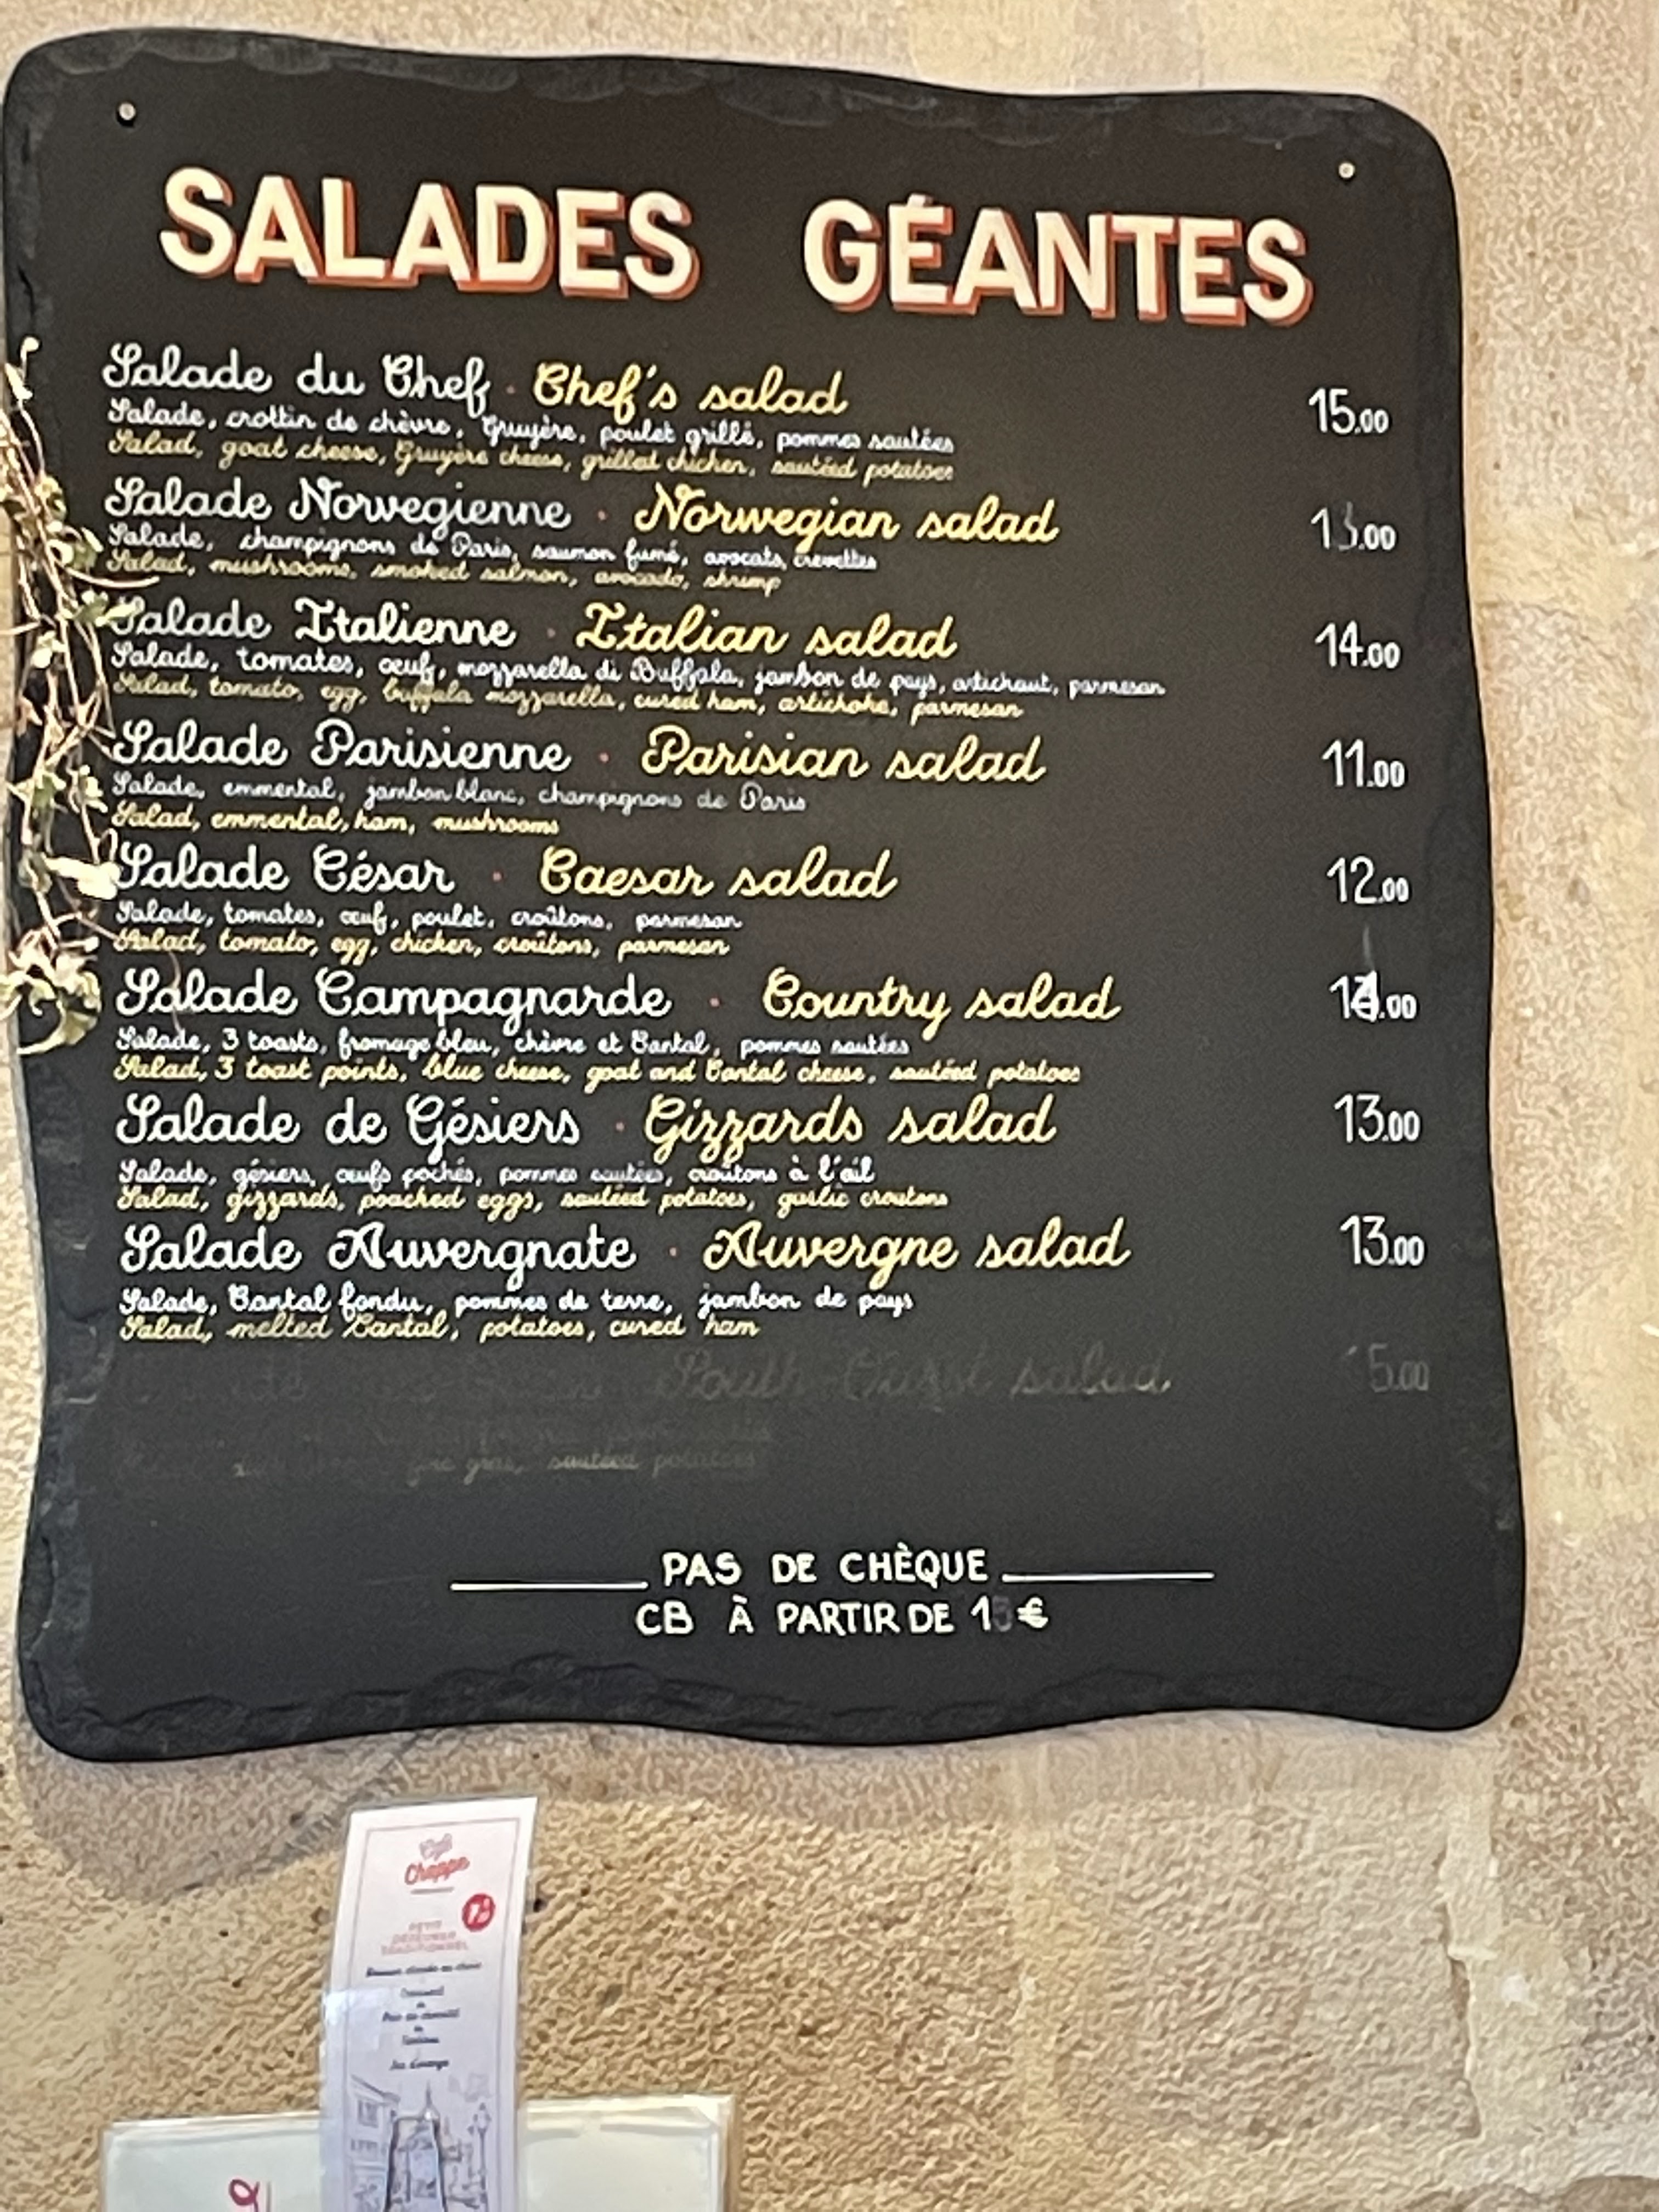 SALADES GÉANTES
Salade du Chef · Chef's salad 15.00
Salade, crottin de chèvre, Gruyère, poulet grillé, pommes sautées
Salad, goat cheese, Gruyère cheese, grilled chicken, sautéed potatoes
Salade Norvegienne · Norwegian salad
Salade, champignons de Paris, saumon fumé, avocats, crevettes
Salad, mushrooms, smoked salmon, avocado, shrimp
Salade Italienne · Italian salad 14.00
Salade, tomates, œuf, mozzarella di Buffala, jambon de pays, artichaut, parmesan
Salad, tomato, egg, buffala mozzarella, cured ham, artichoke, parmesan
Salade Parisienne · Parisian salad 11.00
Salade, emmental, jambon blanc, champignons de Paris
Salad, emmental, ham, mushrooms
Salade César · Caesar salad 12.00
Salade, tomates, œuf, poulet, croûtons, parmesan
Salad, tomato, egg, chicken, croûtons, parmesan
Salade Campagnarde · Country salad
Salade, 3 toasts, fromage bleu, chèvre et Cantal, pommes sautées
Salad, 3 toast points, blue cheese, goat and Cantal cheese, sautéed potatoes
Salade de Gésiers · Gizzards salad 13.00
Salade, gésiers, œufs pochés, pommes sautées, croûtons à l'ail
Salad, gizzards, poached eggs, sautéed potatoes, garlic croutons
Salade Auvergnate · Auvergne salad 13.00
Salade, Cantal fondu, pommes de terre, jambon de pays
Salad, melted Cantal, potatoes, cured ham
salad
foie gras, sautéed potatoes
PAS DE CHÈQUE
CB À PARTIR DE €
Café
Chappe
PETIT
DÉJEUNER
TRADITIONNEL